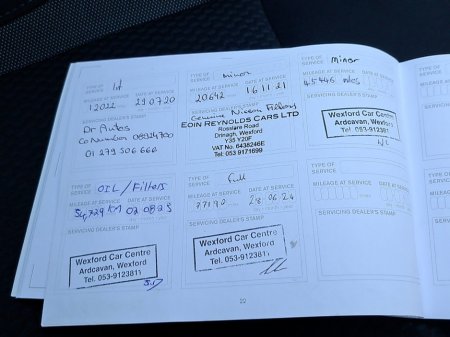 TYPE OF SERVICE 1st
MILEAGE AT SERVICE DATE AT SERVICE
12022 29.07.20
SERVICING DEALER'S STAMP
Dr Autos
Co Number
01 279 506 666
TYPE OF SERVICE Minor
MILEAGE AT SERVICE DATE AT SERVICE
20692 16 11 21
SERVICING DEALER'S STAMP
Genuine Nissan Filters
EOIN REYNOLDS CARS LTD
Rosslare Road
Drinagh, Wexford
Y35 Y20F
VAT No. 6438246E
Tel: 053 9171699
TYPE OF SERVICE Minor
MILEAGE AT SERVICE DATE AT SERVICE
45446 miles
SERVICING DEALER'S STAMP
Wexford Car Centre
Ardcavan, Wexford
Tel. 053-912381
TYPE OF SERVICE OIL/Filters
MILEAGE AT SERVICE DATE AT SERVICE
54,729 KM 02 08 23
SERVICING DEALER'S STAMP
Wexford Car Centre
Ardcavan, Wexford
Tel. 053-9123811
TYPE OF SERVICE Full
MILEAGE AT SERVICE DATE AT SERVICE
77190 28.06.24
SERVICING DEALER'S STAMP
Wexford Car Centre
Ardcavan, Wexford
Tel. 053-9123811
TYPE OF SERVICE
MILEAGE AT SERVICE DATE AT SERVICE
SERVICING DEALER'S STAMP